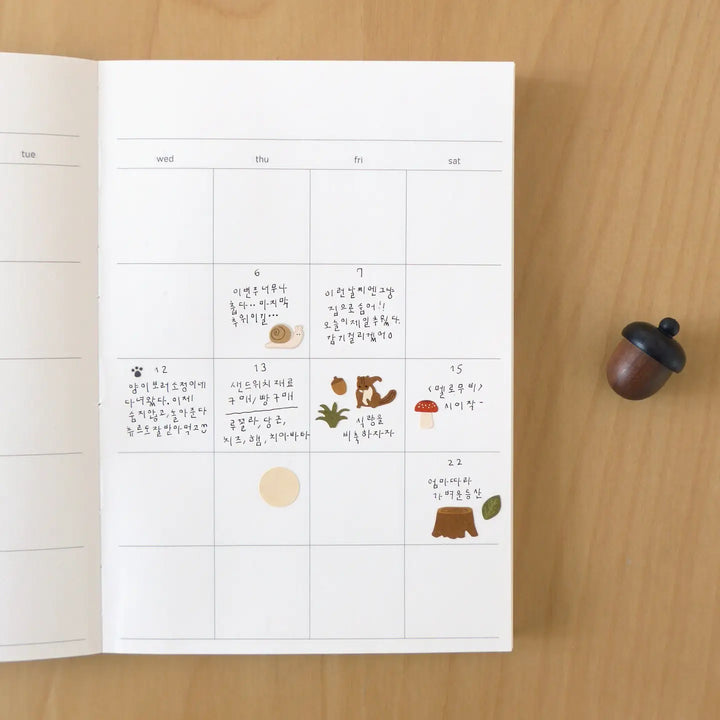 tue
wed
thu
fri
sat
6
이번주 너무나
춥다.. 마지막
추위이길...
7
이런 날씨엔 그냥
집으로 숨어!!
오늘이 제일 추웠다.
감기걸리겠어
12
양이 보러 소정이네
다녀왔다. 이제
숨지않고, 놀아준다
츄르도 잘 받아먹고
13
샌드위치 재료
구매/빵구매
루꼴라, 당근,
치즈, 햄, 치아바타
식량을
비축하자
15
<멜로무비>
시이작-
22
엄마따라
가벼운 등산